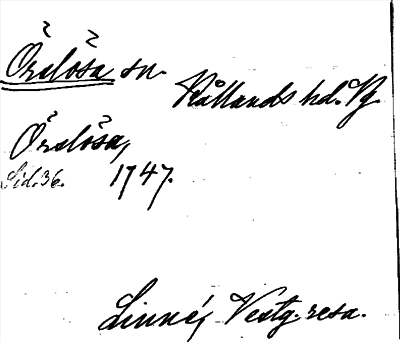 Örslösa sn.
Kållands hd. Vg.
Örslösa,
Sid. 36. 1747.
Linné, Vestg. resa.